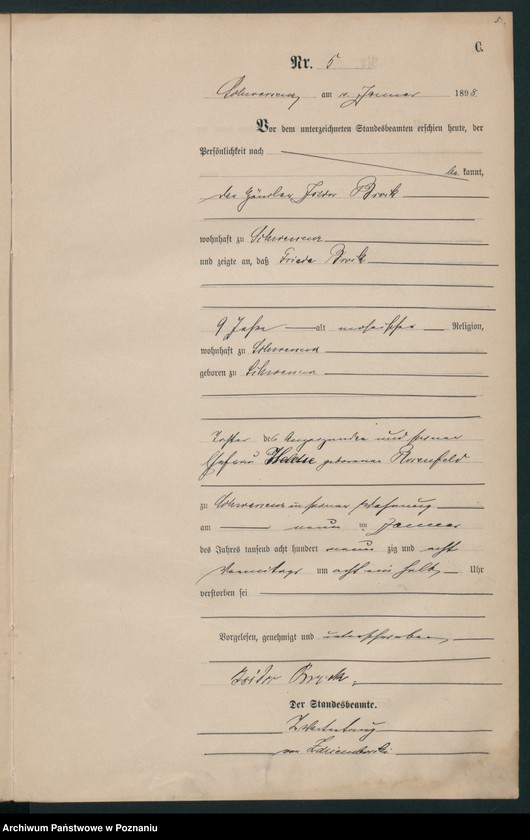 5.
C.
Nr. 5
Schwersenz am 10. Januar 1898.
Vor dem unterzeichneten Standesbeamten erschien heute, der
Persönlichkeit nach
be kannt,
der Händler Isidor Brock
wohnhaft zu Schwersenz
und zeigte an, daß Frieda Brock
9 Jahre alt mosaischer Religion,
wohnhaft zu Schwersenz
geboren zu Schwersenz
Tochter des Anzeigenden und seiner
Ehefrau geborenen Rosenfeld
zu Schwersenz in seiner Wohnung
am neunten Januar
des Jahres tausend acht hundert neun zig und acht
Vormittags um acht ein halb Uhr
verstorben sei
Vorgelesen, genehmigt und unterschrieben
Isidor Brock.
Der Standesbeamte.
In Vertretung
von
Archiwum Państwowe w Poznaniu